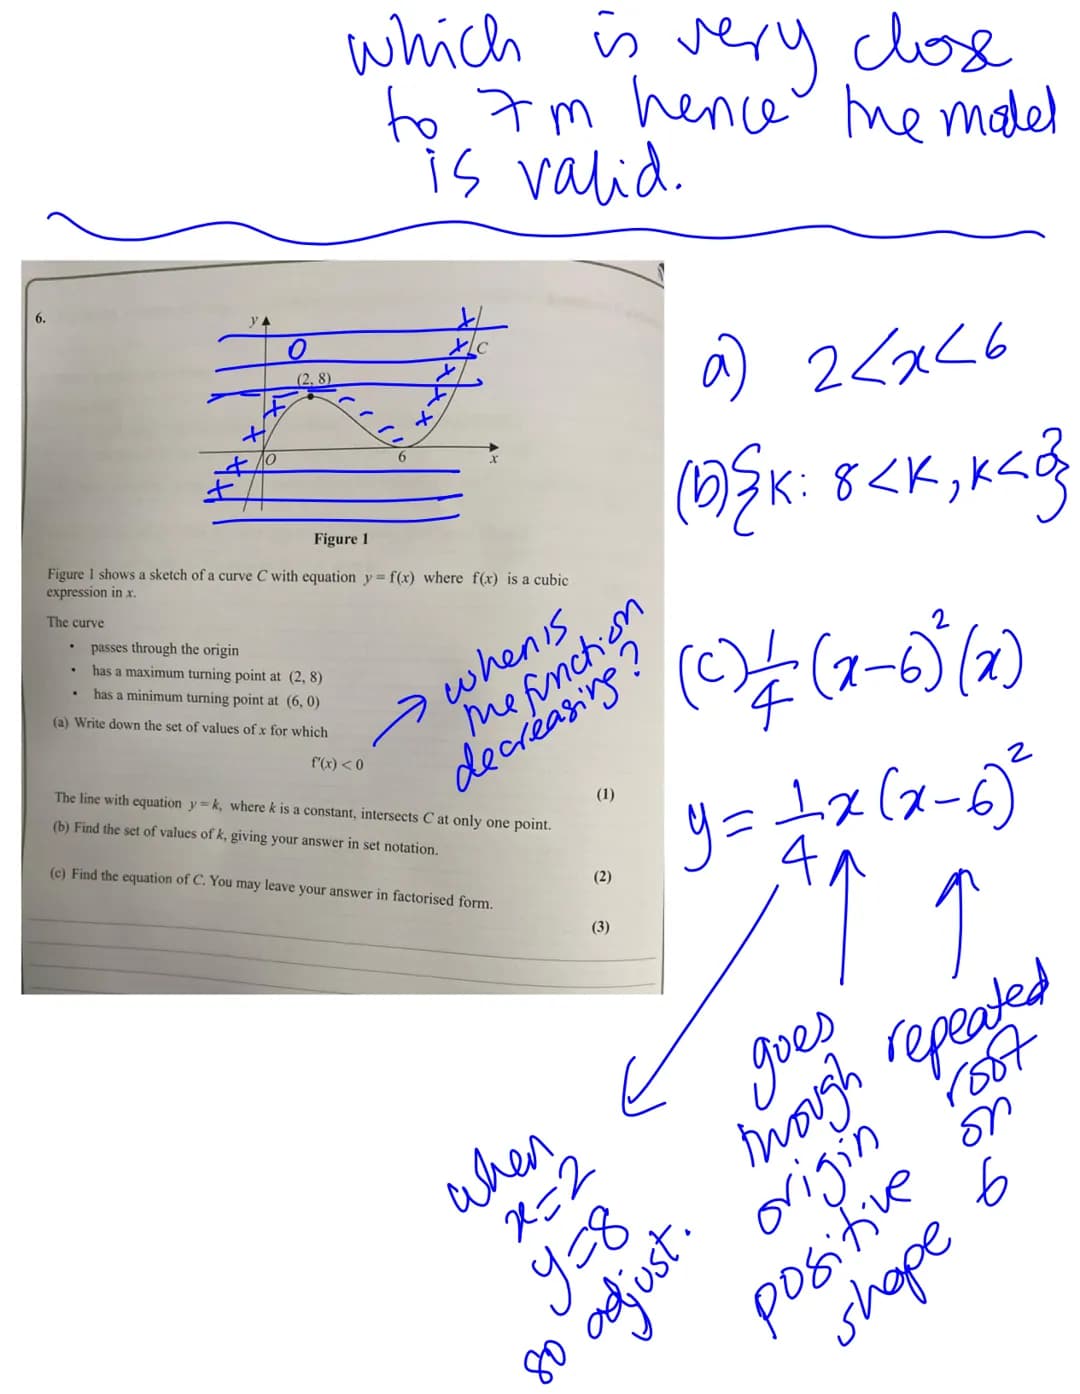 which is very close
to 7m hence the model
is valid.
6.
y
O
C
(2, 8)
O
6
x
Figure 1
Figure 1 shows a sketch of a curve C with equation y = f(x) where f(x) is a cubic
expression in x.
The curve
• passes through the origin
• has a maximum turning point at (2, 8)
• has a minimum turning point at (6, 0)
(a) Write down the set of values of x for which
f′(x) < 0
(1)
The line with equation y = k, where k is a constant, intersects C at only one point.
(b) Find the set of values of k, giving your answer in set notation.
(2)
(c) Find the equation of C. You may leave your answer in factorised form.
(3)
when is
the function
decreasing?
a) 2<x<6
(b) {K: 8<K, K<0}
(c) 1/4 (x-6)²(x)
y = 1/4 x(x-6)²
when
x=2
y=8
so adjust.
goes
through
origin
positive
shape
repeated
root
on
6